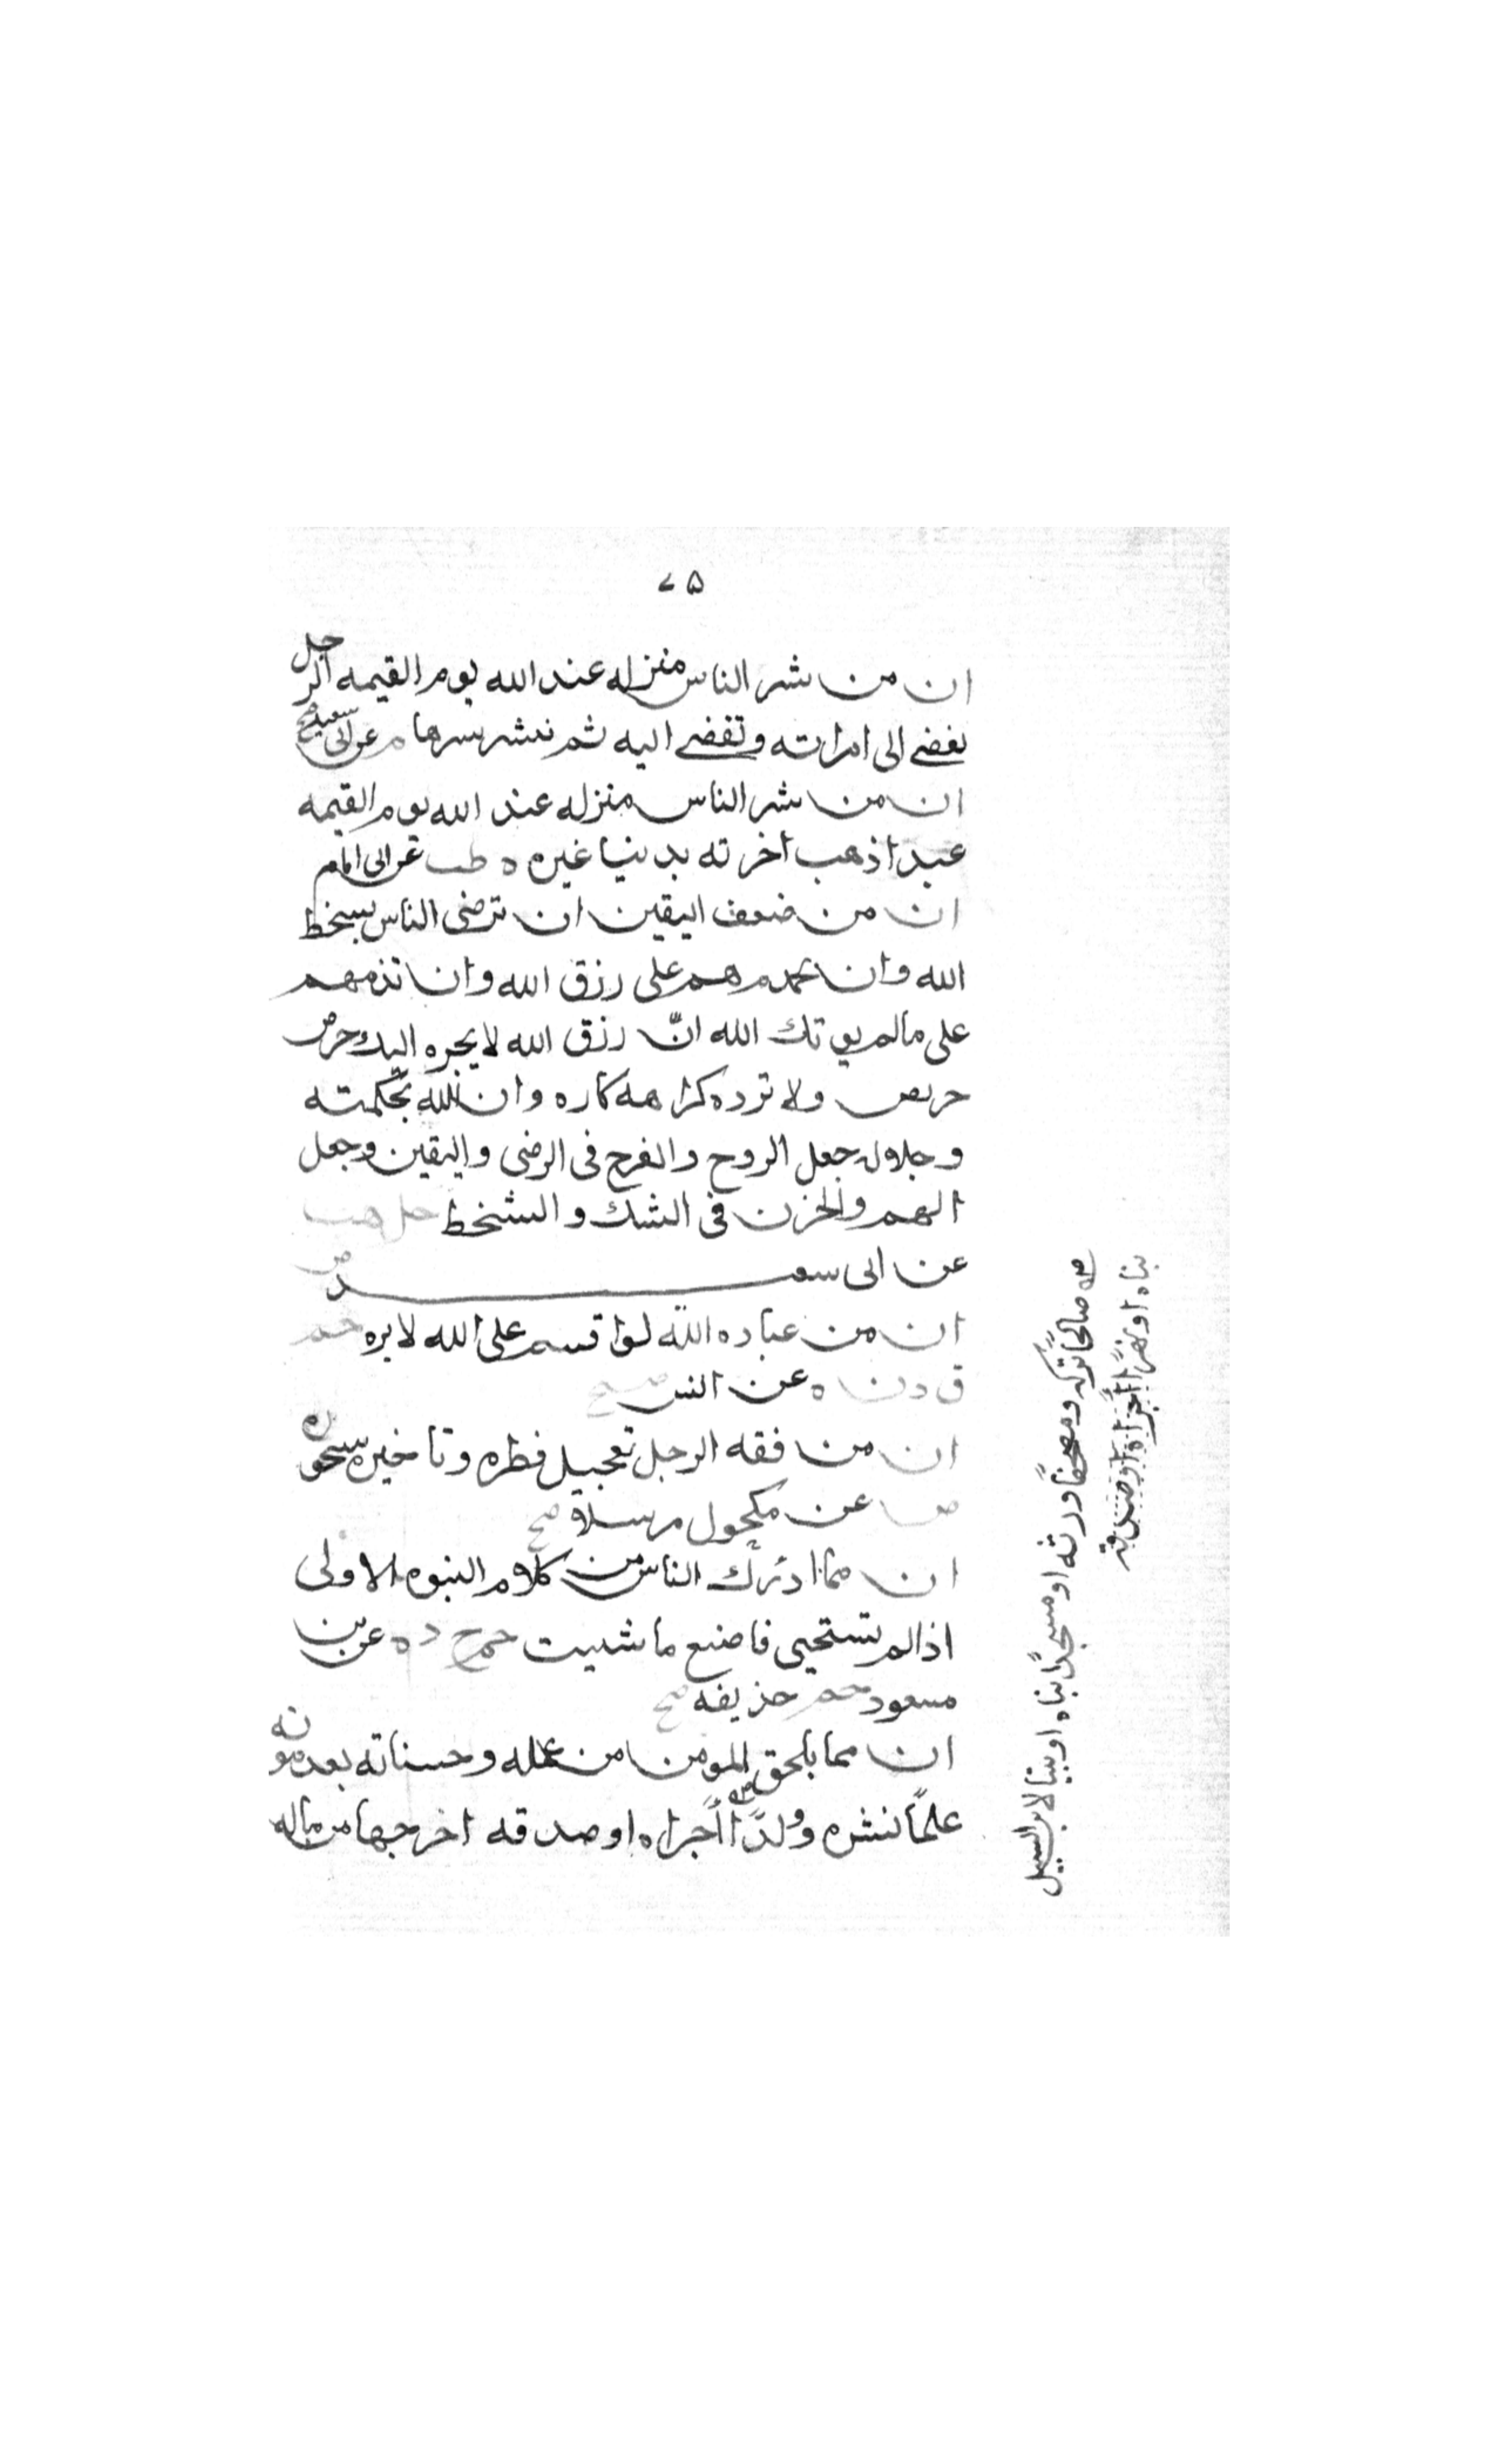 ٧٥
ان من شر الناس منزله عند الله يوم القيمه الرجل
يفضى الى امراته وتفضى اليه ثم ينشر سرها م عن ابى سعيد صح
ان من شر الناس منزله عند الله يوم القيمه
عبد اذهب اخرته بدنيا غيره ه طب عن ابى امامه
ان من ضعف اليقين ان ترضى الناس بسخط
الله وان تحمدهم على رزق الله وان تذمهم
على مالم يوتك الله انّ رزق الله لا يجره اليك حرص
حريص ولا ترده كراهه كاره وان الله بحكمته
وجلاله جعل الروح والفرح فى الرضى واليقين وجعل
الهم والحزن فى الشك والسخط حل هب
عن ابى سعيد ض
ان من عباد الله لو اقسم على الله لابره حم
ق د ن ه عن انس صح
ان من فقه الرجل تعجيل فطره وتاخير سحوره
ص عن مكحول مرسلا صح
ان مما ادرك الناس من كلام النبوه الاولى
اذا لم تستحيى فاصنع ما شيت حم خ د ه عن بن
مسعود حم حذيفه صح
ان مما يلحق المومن من عمله وحسناته بعد موته
علمًا نشره وولدًا اجراه او صدقه اخرجها من ماله
صالحًا تركه ومصحفًا ورثه او مسجدًا بناه او بيتا لابن السبيل
بناه او نهرًا اجراه او صدقه